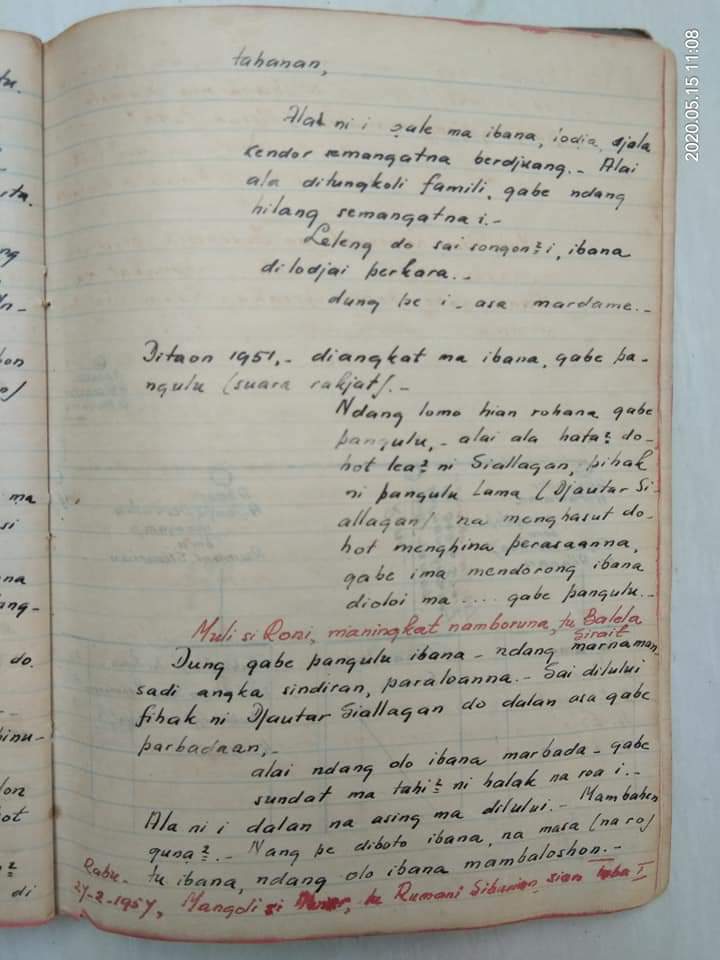 tahanan,
Ala ni i sule ma ibana, iodia, djala
kendor semangatna berdjuang.- Alai
ala ditungkoli famili, gabe ndang
hilang semangatna i.-
Leleng do sai songon² i, ibana
dilodjai perkara.-
dung pe i - asa mardame.-
Ditaon 1951,- diangkat ma ibana, gabe pa-
ngulu (suara rakjat).-
Ndang lomo hian rohana gabe
pangulu,- alai ala hata² do-
hot lea² ni Siallagan, pihak
ni pangulu Lama (Djautar Si-
allagan) na menghasut do-
hot menghina perasaanna,
gabe ima mendorong ibana
dioloi ma .... gabe pangulu.-
Muli si Roni, maningkat namboruna, tu Balela
Sirait
Dung gabe pangulu ibana - ndang marnaman
sadi angka sindiran, paraloanna.- Sai dilului
fihak ni Djautar Siallagan do dalan asa gabe
parbadaan,-
alai ndang olo ibana marbada - gabe
sundat ma tahi² ni halak na roa i.-
Ala ni i dalan na asing ma dilului.- Mambahen
guna².- Nang pe diboto ibana, na masa (na ro)
tu ibana, ndang olo ibana mambaloshon.-
Rabu-
27-2-1957, Mangoli si tu Rumani Sibarian sian Toba I
tu.
rta.
ng
n-
bon
ma
si
na
ang-
do.
hinu-
lon
ot
di
2020.05.15 11:08